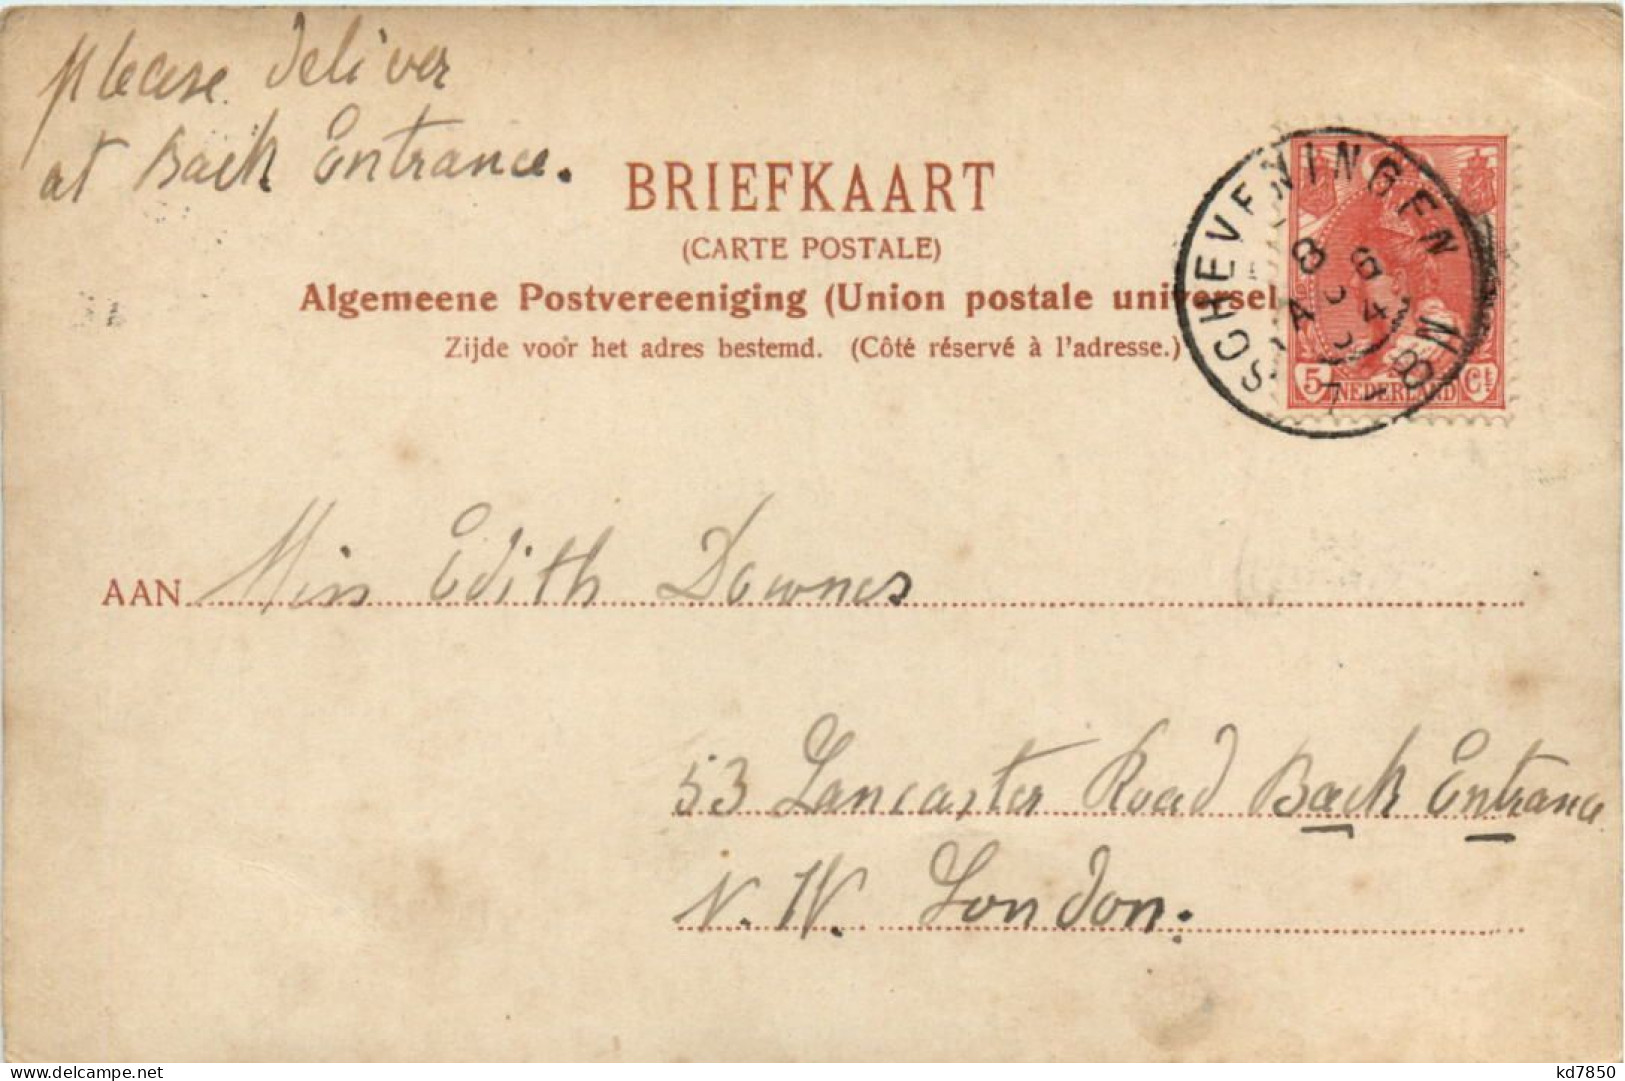 please deliver
at Back Entrance.
BRIEFKAART
(CARTE POSTALE)
Algemeene Postvereeniging (Union postale universel
Zijde voor het adres bestemd. (Côté réservé à l'adresse.)
SCHEVENINGEN
5 NEDERLAND Ct
AAN Miss Edith Downes
53 Lancaster Road Back Entrance
N.W. London.
delcampe.net
kd7850